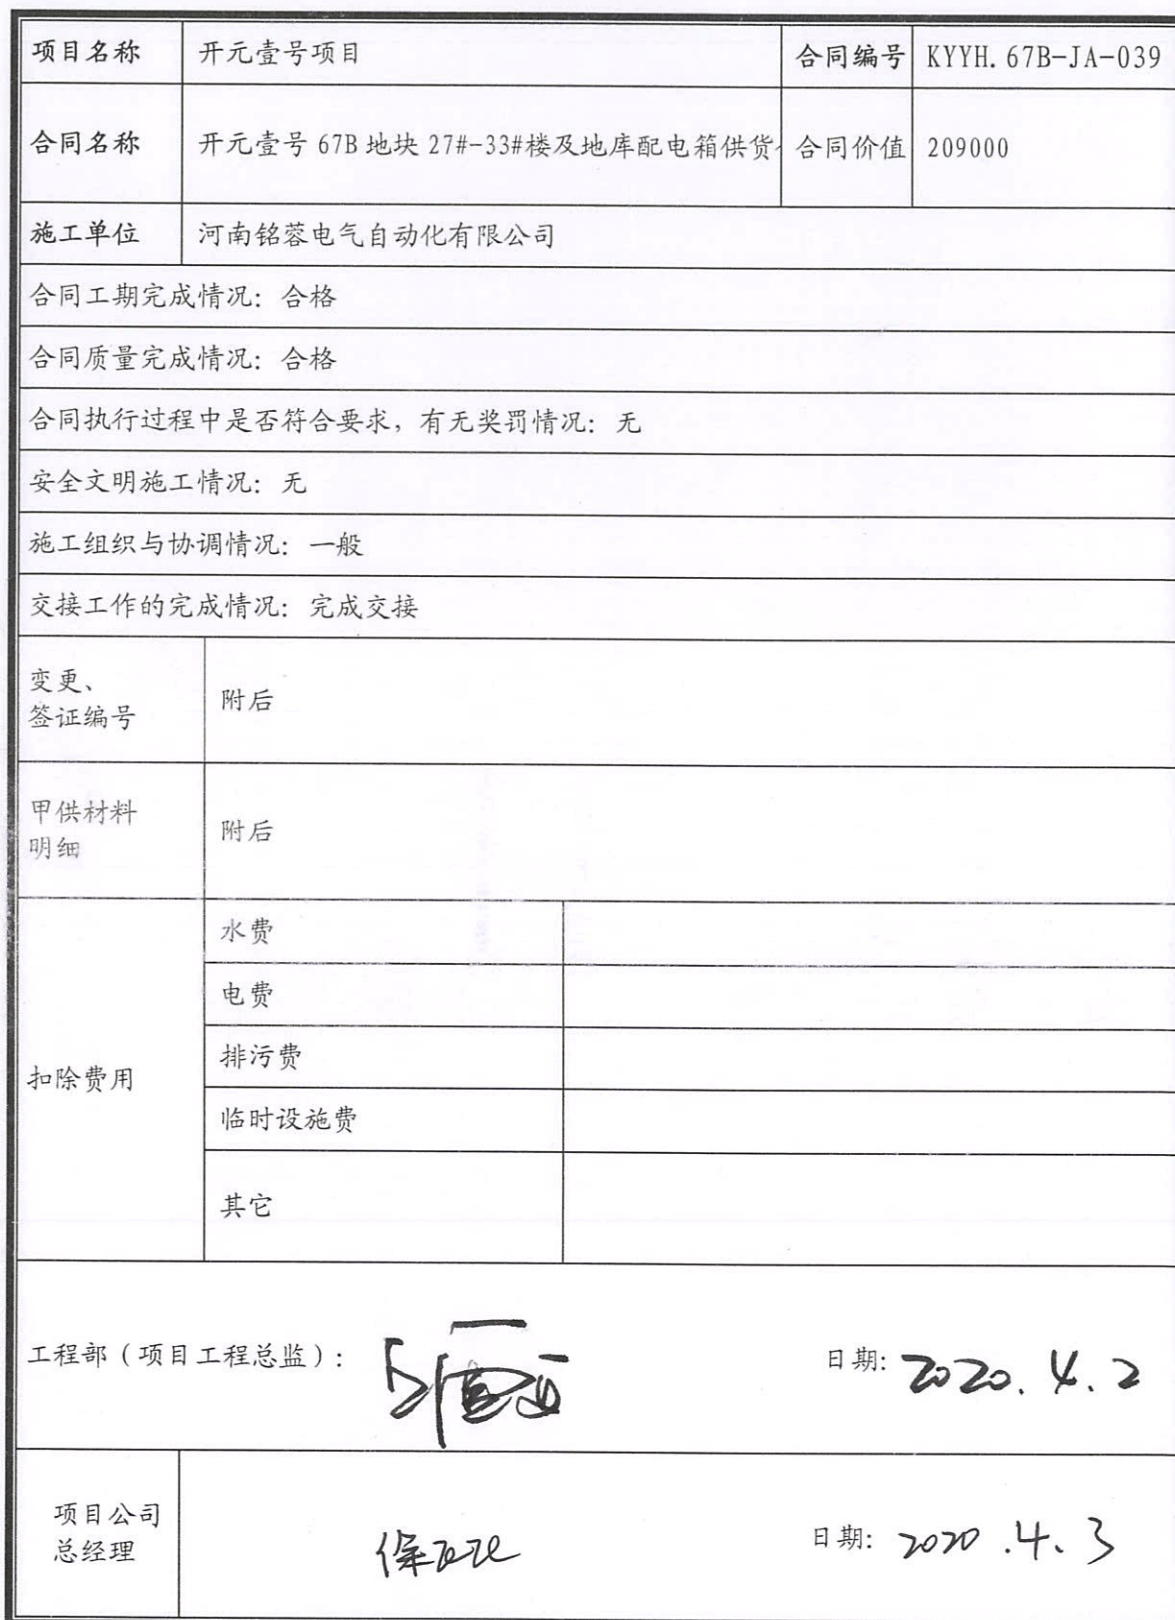 项目名称 开元壹号项目 合同编号 KYYH.67B-JA-039
合同名称 开元壹号 67B 地块 27#-33#楼及地库配电箱供货 合同价值 209000
施工单位 河南铭蓉电气自动化有限公司
合同工期完成情况：合格
合同质量完成情况：合格
合同执行过程中是否符合要求，有无奖罚情况：无
安全文明施工情况：无
施工组织与协调情况：一般
交接工作的完成情况：完成交接
变更、
签证编号 附后
甲供材料
明细 附后
扣除费用
水费
电费
排污费
临时设施费
其它
工程部（项目工程总监）： 日期: 2020.4.2
项目公司
总经理 日期: 2020.4.3